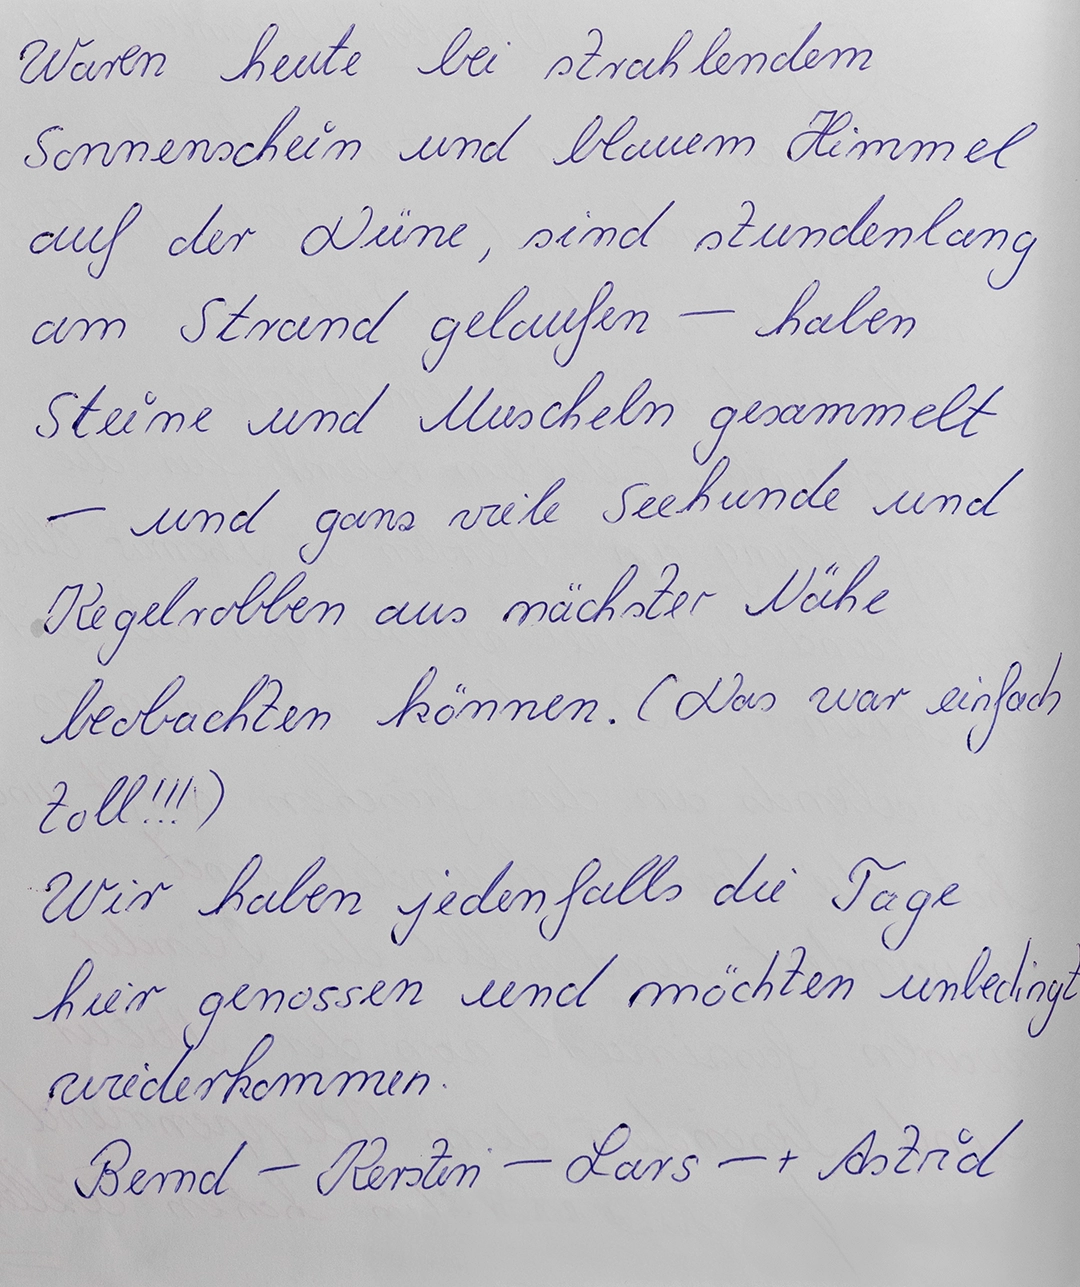 Waren heute bei strahlendem
Sonnenschein und blauem Himmel
auf der Düne, sind stundenlang
am Strand gelaufen – haben
Steine und Muscheln gesammelt
– und ganz viele Seehunde und
Kegelrobben aus nächster Nähe
beobachten können. (Das war einfach
toll!!!)
Wir haben jedenfalls die Tage
hier genossen und möchten unbedingt
wiederkommen.
Bernd – Kerstin – Lars – + Astrid